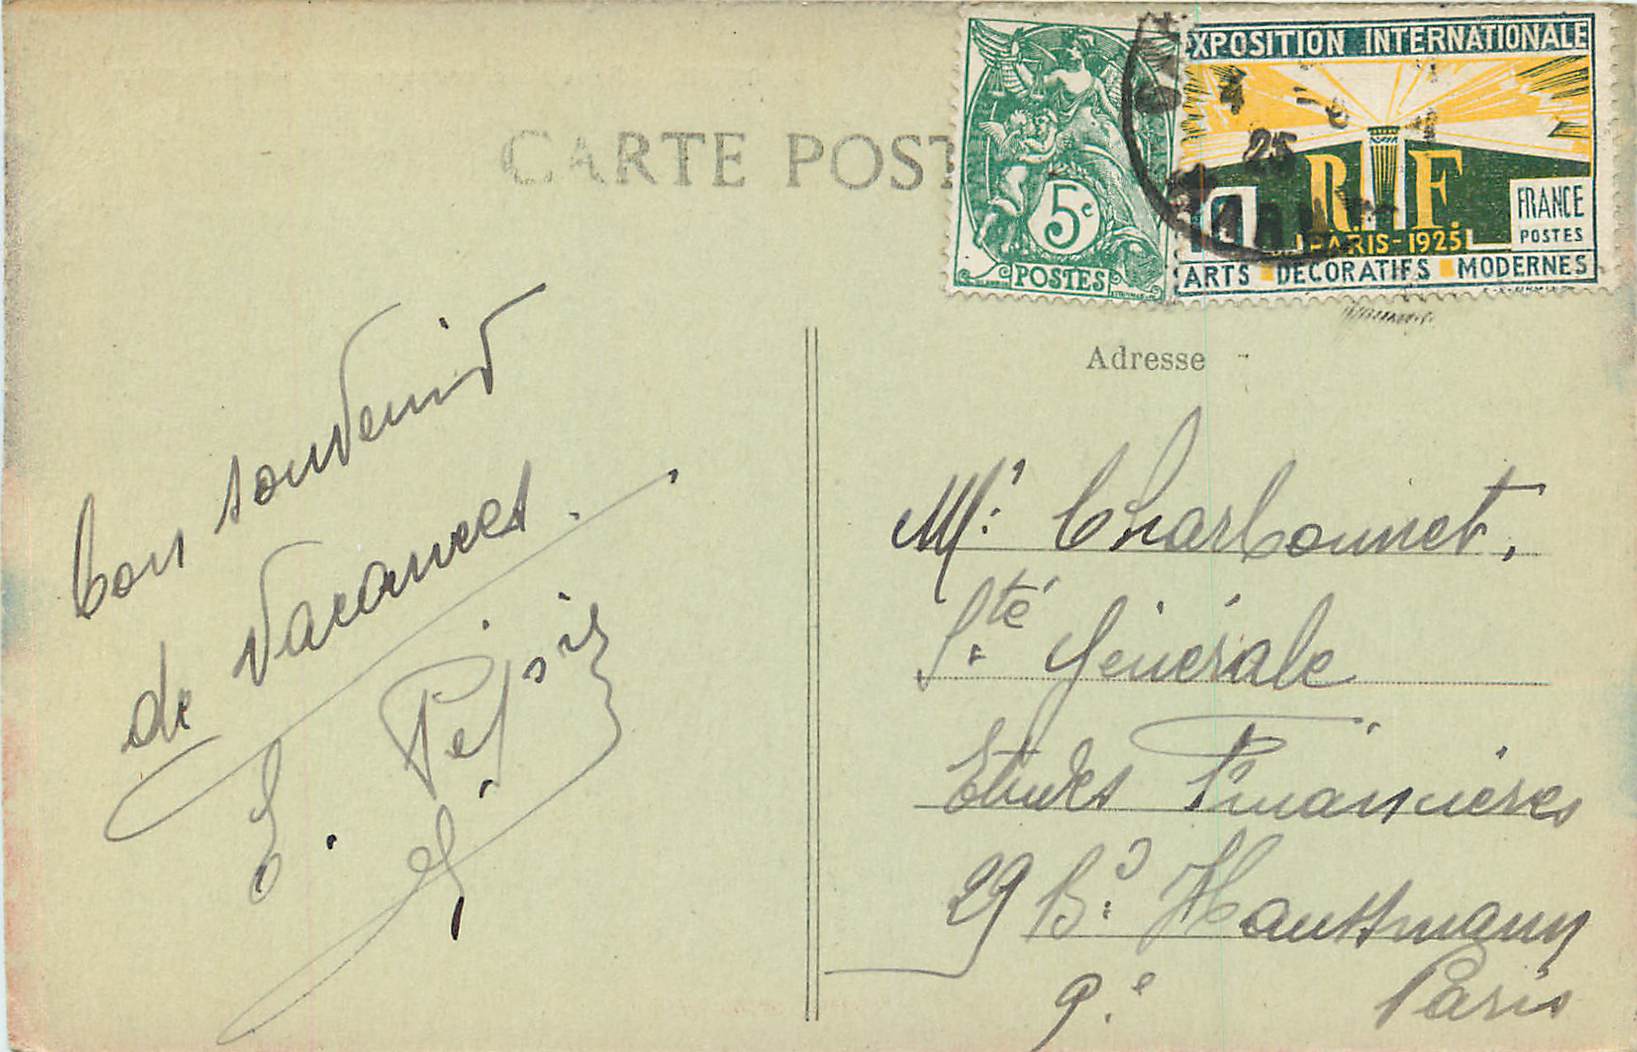 CARTE POST
5c
POSTES
EXPOSITION INTERNATIONALE
25
R. F.
FRANCE
POSTES
PARIS-1925
ARTS DECORATIFS MODERNES
Adresse
bon souvenir
de vacances.
E.
Mr. Charbonnet,
Sté Générale
Etudes Financières
29 Bd. Haussmann
9.e Paris